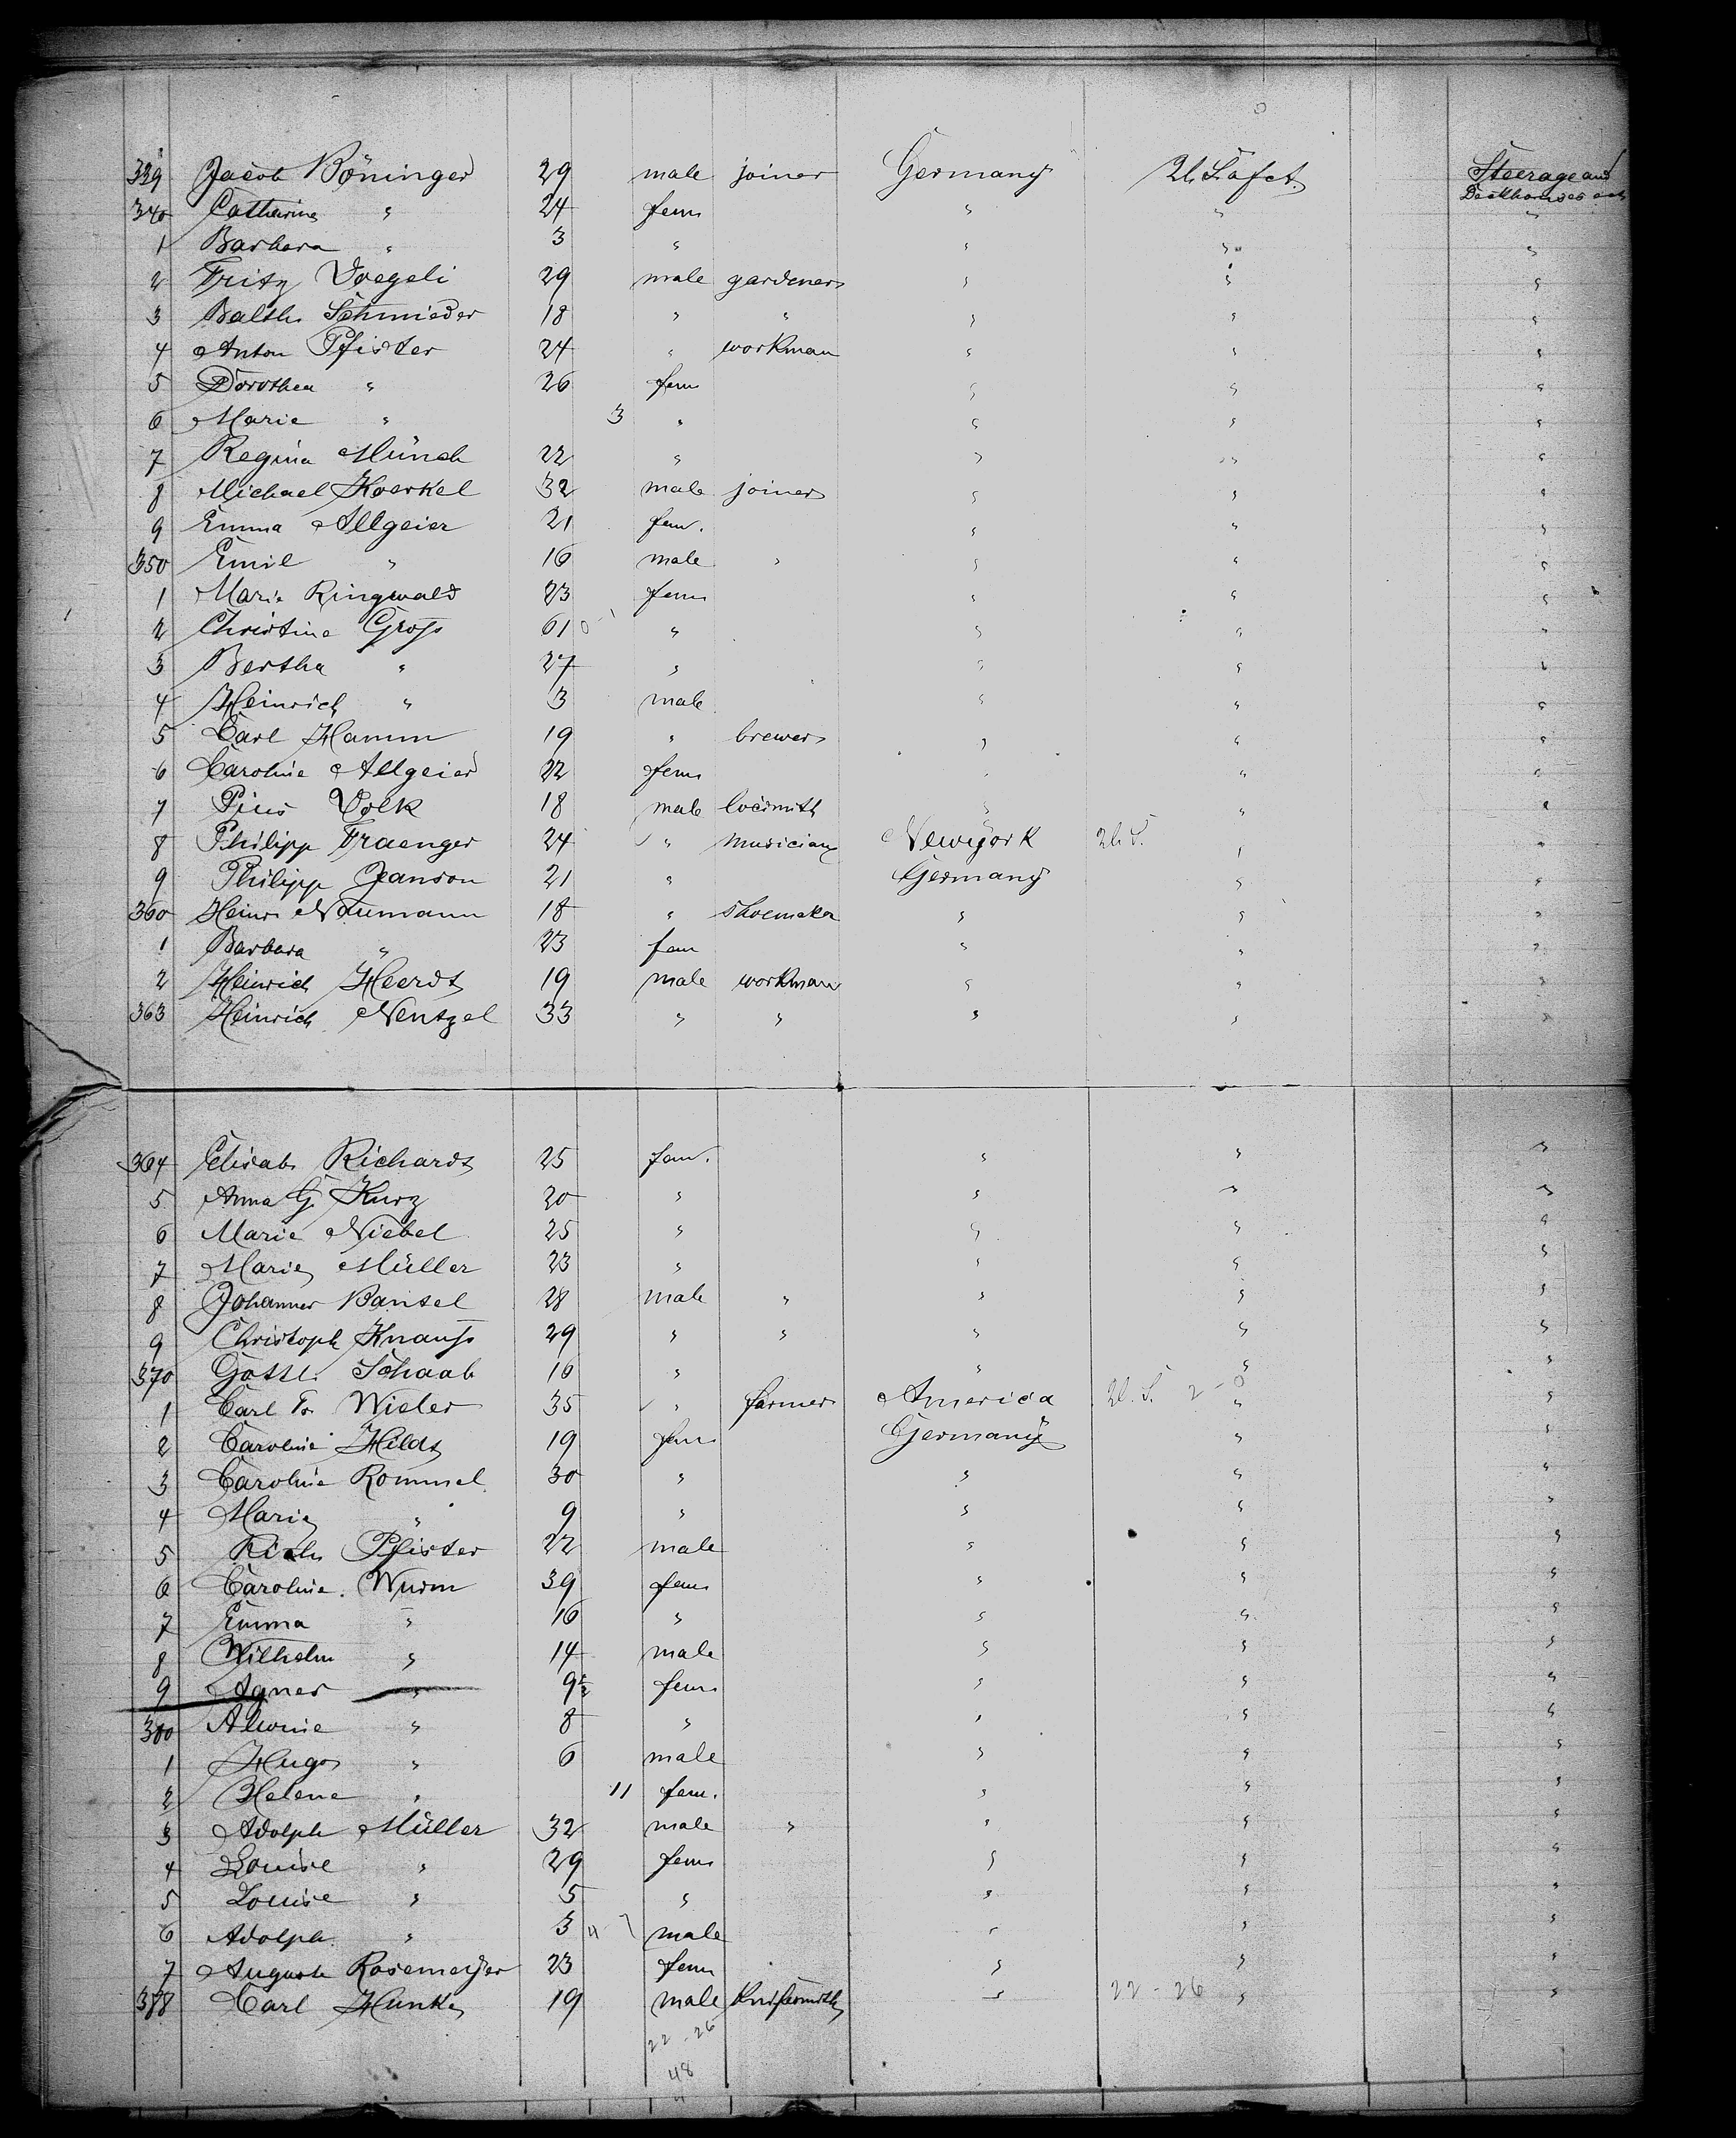 339 Jacob Böninger 29 male joiner Germany U. S. of ct. Steerage and
Deckhouses
340 Catharine " 24 fem " " "
1 Barbara " 3 " " " "
2 Fritz Voegeli 29 male gardener " " "
3 Balth. Schmieder 18 " " " " "
4 Anton Pfister 24 " workman " " "
5 Dorothea " 26 fem " " "
6 Marie " 3 " " " "
7 Regina Münch 22 " " " "
8 Michael Koerkel 32 male joiner " " "
9 Emma Allgeier 21 fem. " " "
350 Emil " 16 male " " " "
1 Marie Ringwald 23 fem " " "
2 Christine Groß 61 " " " "
3 Bertha " 27 " " " "
4 Heinrich " 3 male " " "
5 Carl Hamm 19 " brewer " " "
6 Caroline Allgeier 22 fem " " "
7 Pius Volk 18 male locsmith " " "
8 Philipp Fraenger 24 " musician Newyork U. S. " "
9 Philipp Janson 21 " Germany " "
360 Heinr. Naumann 18 " shoemaker " " "
1 Barbara " 23 fem " " "
2 Heinrich Heerdt 19 male workman " " "
363 Heinrich Nentzel 33 " " " " "
364 Elisab. Richardt 25 fem. " " "
5 Anna G. Kurz 20 " " " "
6 Marie Niebel 25 " " " "
7 Marie Müller 23 " " " "
8 Johannes Bansel 28 male " " " "
9 Christoph Knauss 29 " " " " "
370 Gottl. Schaab 16 " " " "
1 Carl Fr. Wieler 35 " farmer America U. S. 2-0 " "
2 Caroline Hildt 19 fem Germany " "
3 Caroline Rommel 30 " " " "
4 Marie " 9 " " " "
5 Rich. Pfister 22 male " " "
6 Caroline Wurm 39 fem " " "
7 Emma " 16 " " " "
8 Wilhelm " 14 male " " "
9 Agnes " 9½ fem " " "
380 Alwine " 8 " " " "
1 Hugo " 6 male " " "
2 Helene " 11 fem. " " "
3 Adolph Müller 32 male " " " "
4 Louise " 29 fem " " "
5 Louise " 5 " " " "
6 Adolph " 3 male " " "
7 Auguste Rosemeyer 23 fem " " "
388 Carl Hunke 19 male Knifesmith " 22-26 " "
22-26
48
4